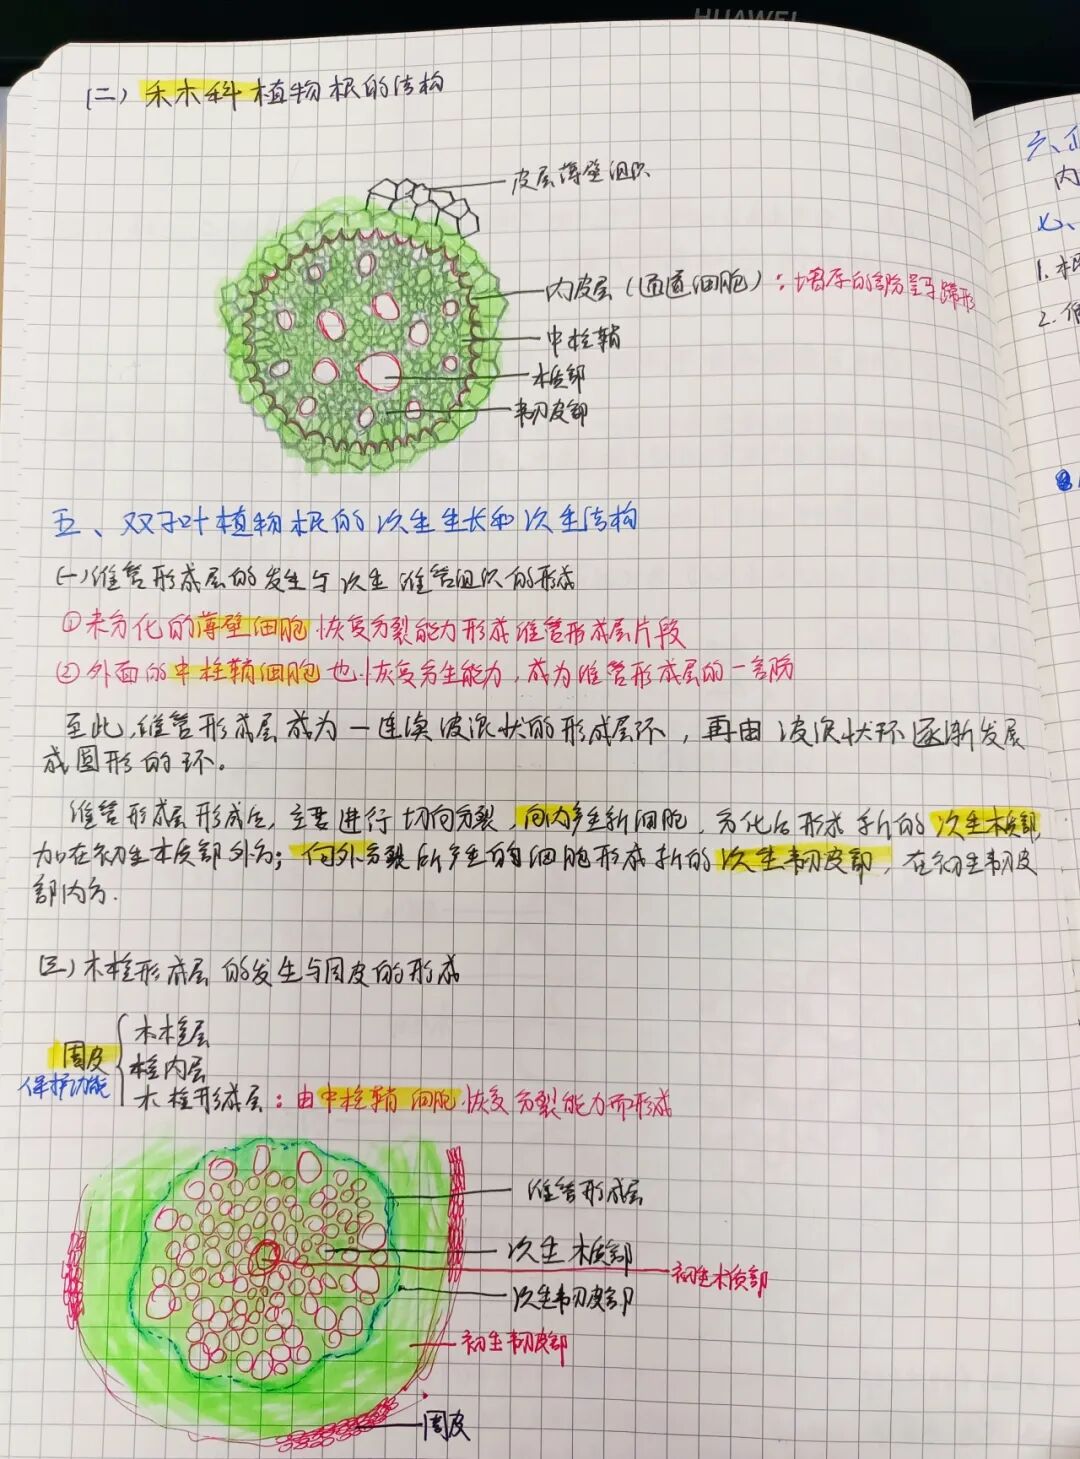 HUAWEI
(二) 禾本科植物根的结构
皮层薄壁组织
内皮层(通道细胞):增厚的部分呈马蹄形
中柱鞘
木质部
韧皮部
五、双子叶植物根的次生生长和次生结构
(一)维管形成层的发生与次生维管组织的形成
①未分化的薄壁细胞恢复分裂能力形成维管形成层片段
②外面的中柱鞘细胞也恢复分生能力,成为维管形成层的一部分
至此,维管形成层成为一连续波浪状的形成层环,再由波浪状环逐渐发展
成圆形的环。
维管形成层形成后,主要进行切向分裂,向内产生新细胞,分化后形成新的次生木质部,
加在初生木质部外方;向外分裂所产生的细胞形成新的次生韧皮部,在初生韧皮
部内方.
(二)木栓形成层的发生与周皮的形成
周皮
保护功能
木栓层
栓内层
木栓形成层:由中柱鞘细胞恢复分裂能力而形成
维管形成层
次生木质部
初生木质部
次生韧皮部
初生韧皮部
周皮
六、
内
七、
1.根
2.